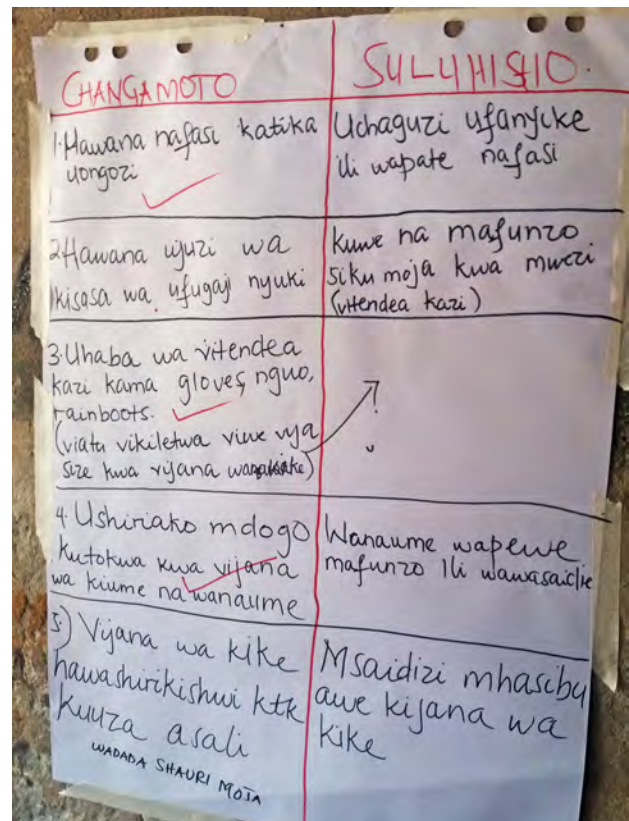 CHANGAMOTO
SULUHISHO.
1. Hawana nafasi katika
uongozi
Uchaguzi ufanyike
ili wapate nafasi
2 Hawana ujuzi wa
kisasa wa ufugaji nyuki
kuwe na mafunzo
siku moja kwa mwezi
(vitendea kazi)
3. Uhaba wa vitendea
kazi kama gloves, nguo,
rainboots.
(viatu vikiletwa viwe vya
size kwa vijana wanakike)
?
4 Ushiriako mdogo
kutokwa kwa vijana
wa kiume na wanaume
Wanaume wapewe
mafunzo ili wawasaidie
5) Vijana wa kike
hawashirikishwi ktk
kuuza asali
WADADA SHAURI MOJA
Msaidizi mhasibu
awe kijana wa
kike